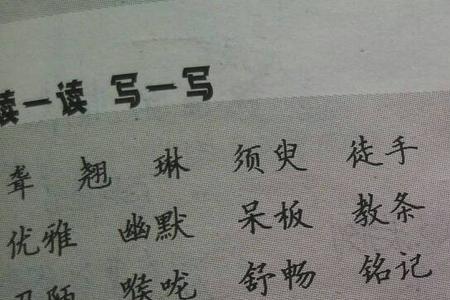 读一读 写一写
聋 翘 琳 须臾 徒手
优雅 幽默 呆板 教条
喉咙 舒畅 铭记